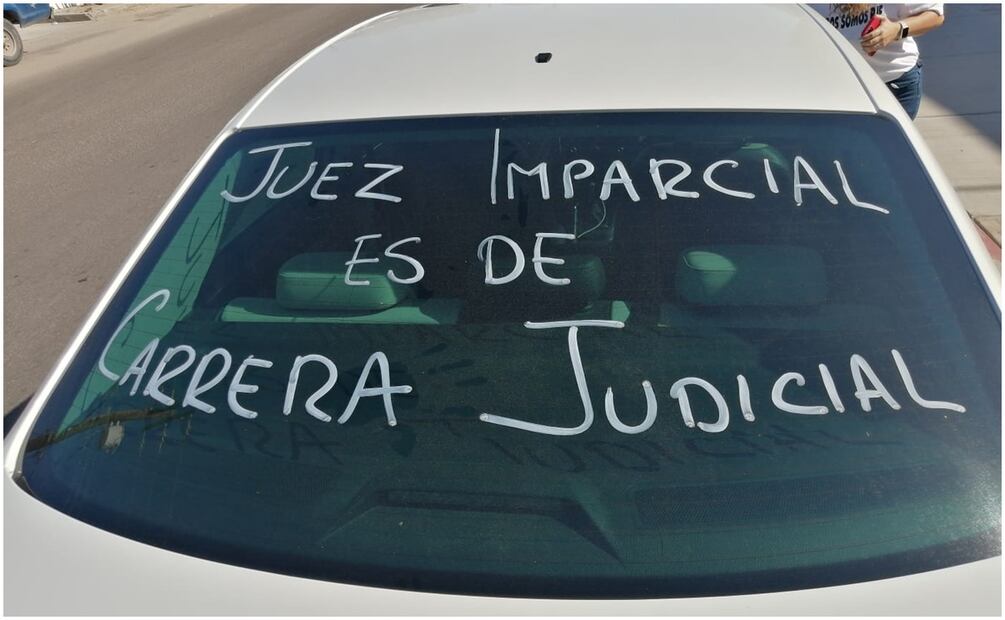 JUEZ IMPARCIAL
ES DE
CARRERA JUDICIAL
SOMOS